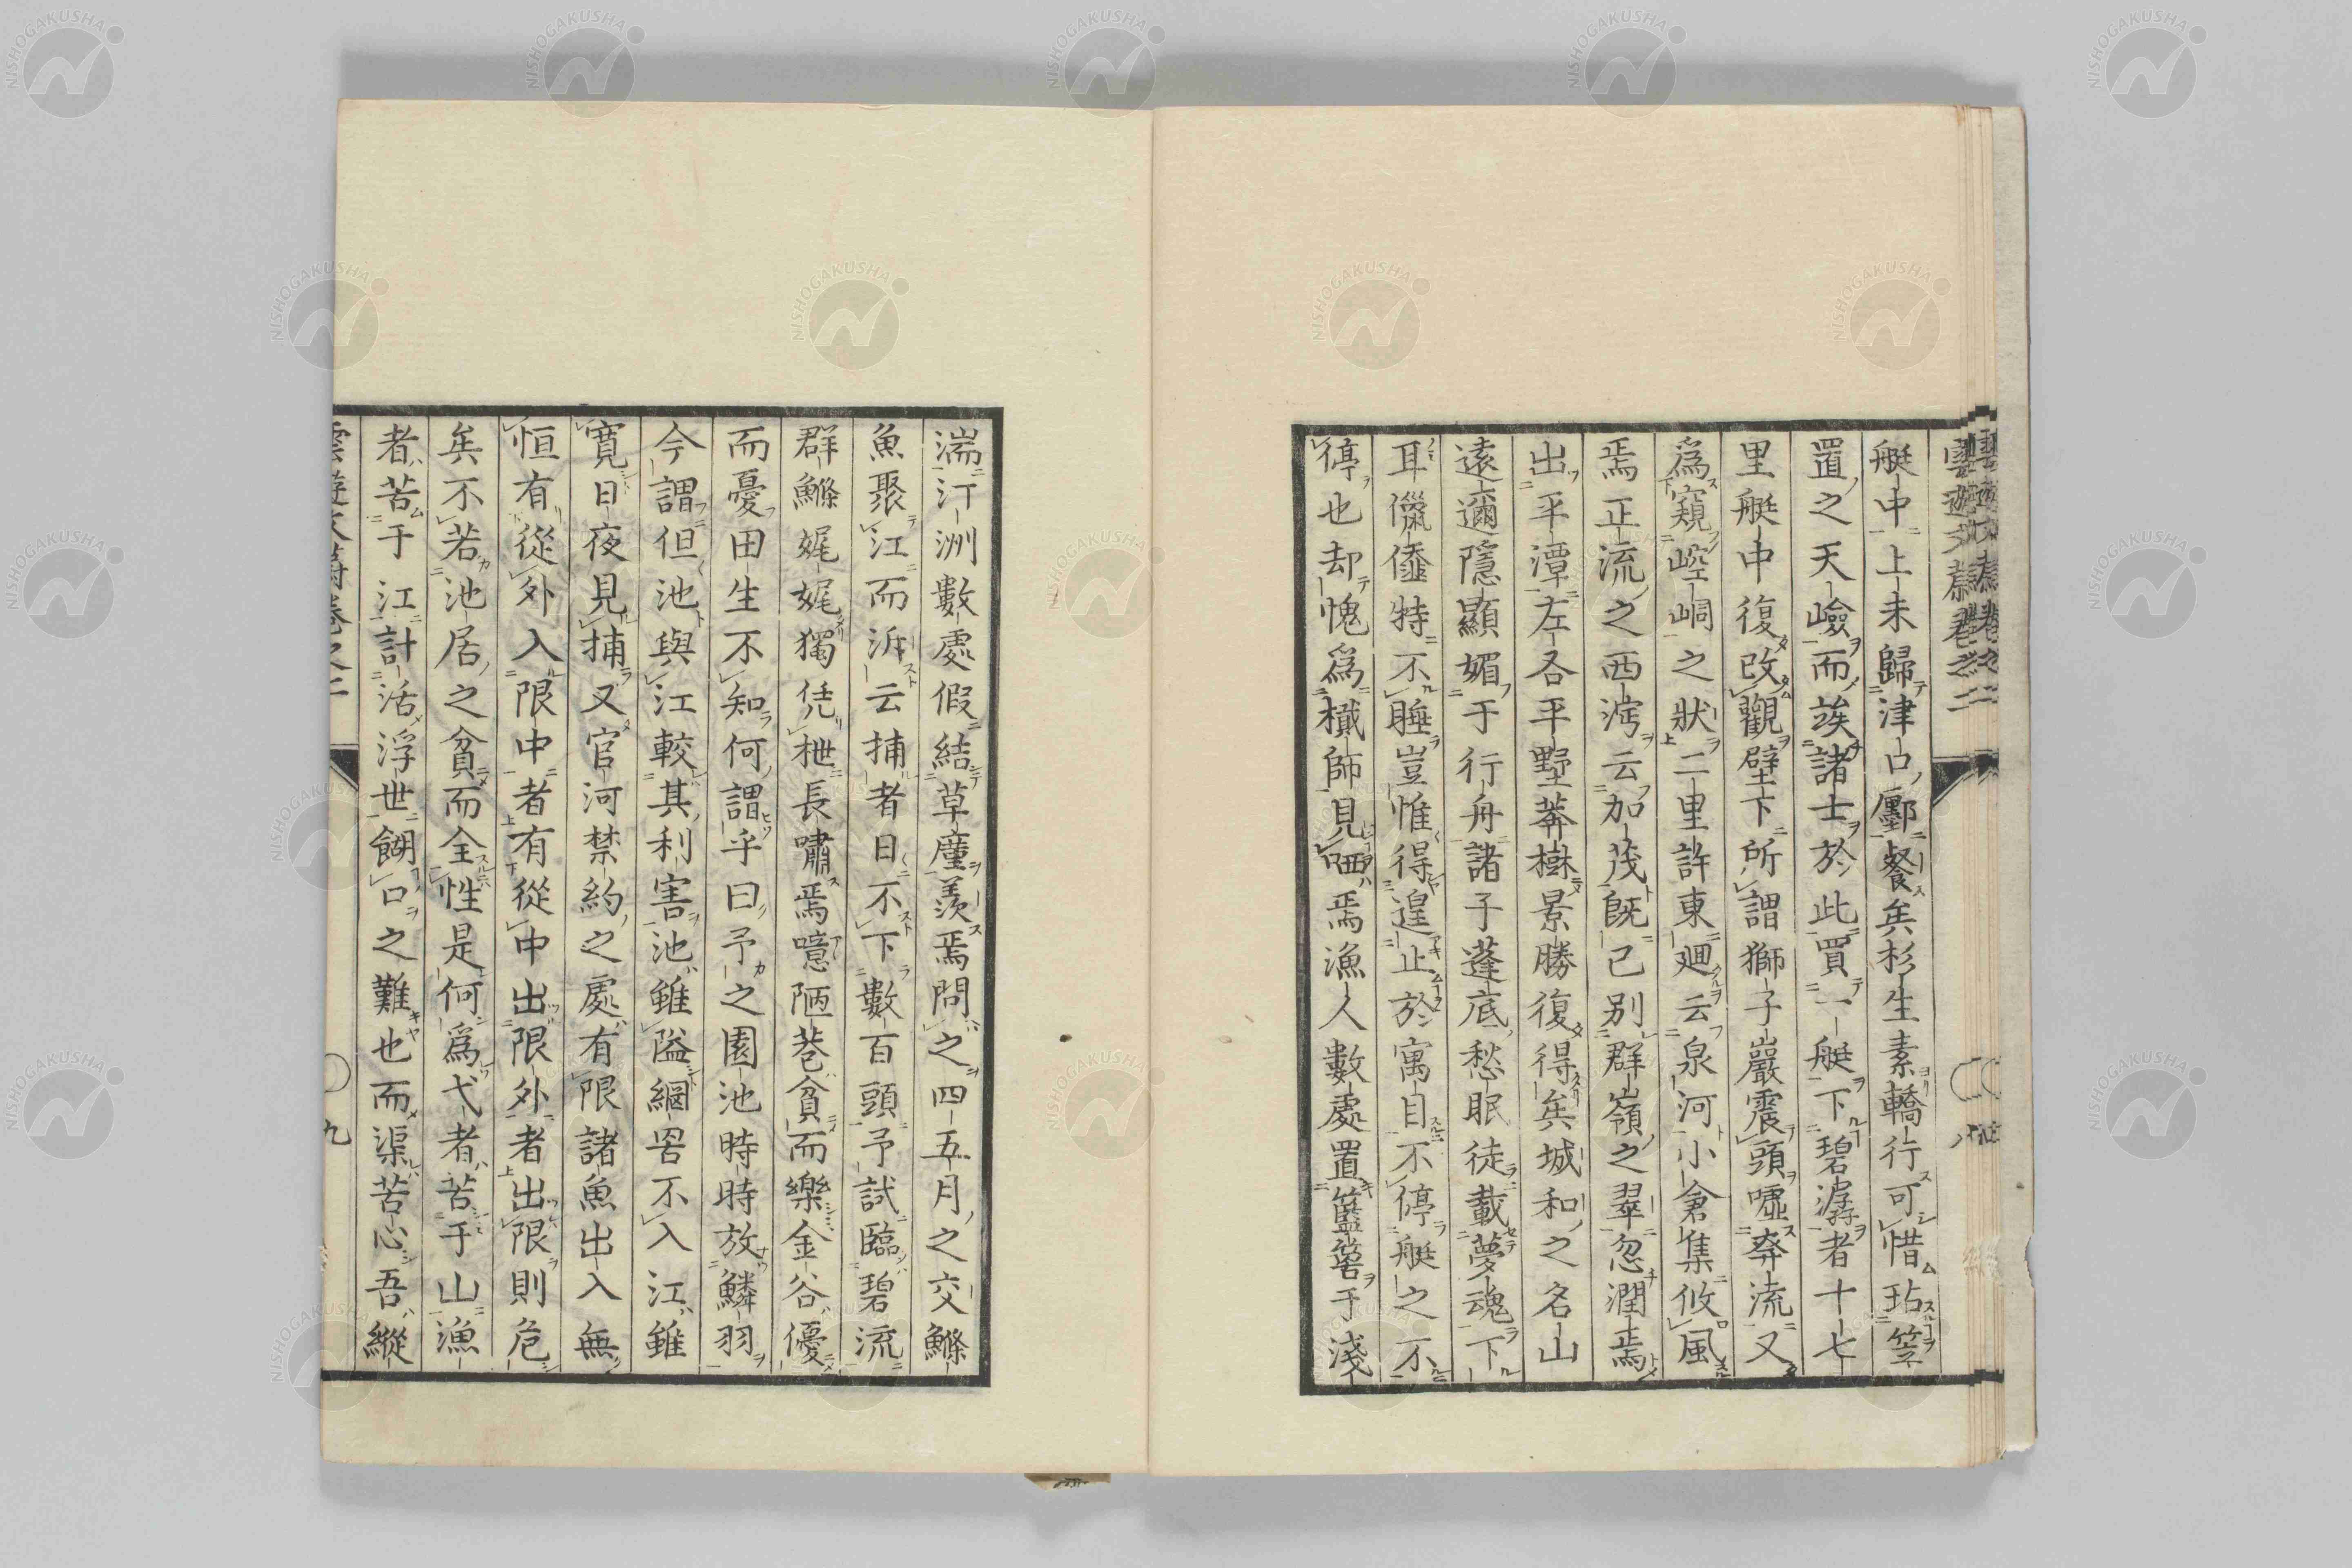 艇中上未歸津口鄽餐矣杉生素轎行可惜玷笠
置之天嶮而竢諸士於此買一艇下碧潺者十七
里艇中復改觀壁下所謂獅子巖震頭噓奔流又
爲窺崆峒之狀二里許東廻云泉河小倉集攸風
焉正流之西渟云加茂既已別群嶺之翠忽潤焉
出平潭左各平野莽樹景勝復得矣城和之名山
遠邇隱顯媚于行舟諸子蓬底愁眠徒載夢魂下
耳儠儠特不睡豈惟得遑止於寓目不停艇之不
停也却愧爲檝師見哂焉漁人數處置籃簹于淺
湍汀洲數處假結草廬羨焉問之四五月之交鰷
魚聚江而泝云捕者日不下數百頭予試臨碧流
群鰷娓娓獨凭枻長嘯焉噫陋巷貧而樂金谷優
而憂田生不知何謂乎曰予之園池時時放鱗羽
今謂但池與江較其利害池雖隘網罟不入江雖
寬日夜見捕又官河禁約之處有限諸魚出入無
恒有從外入限中者有從中出限外者出限則危
矣不若池居之貧而全性是何爲弋者苦于山漁
者苦于江計活浮世餬口之難也而渠苦心吾縱
雲遊文蔚卷之二
九